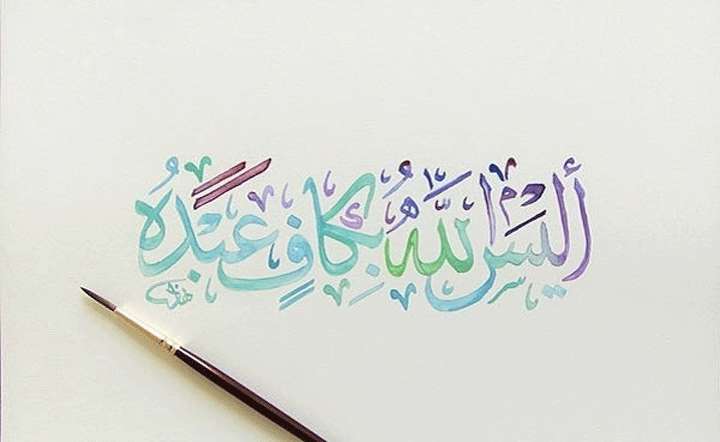 أليسَ اللّهُ بِكافٍ عَبْدَهُ